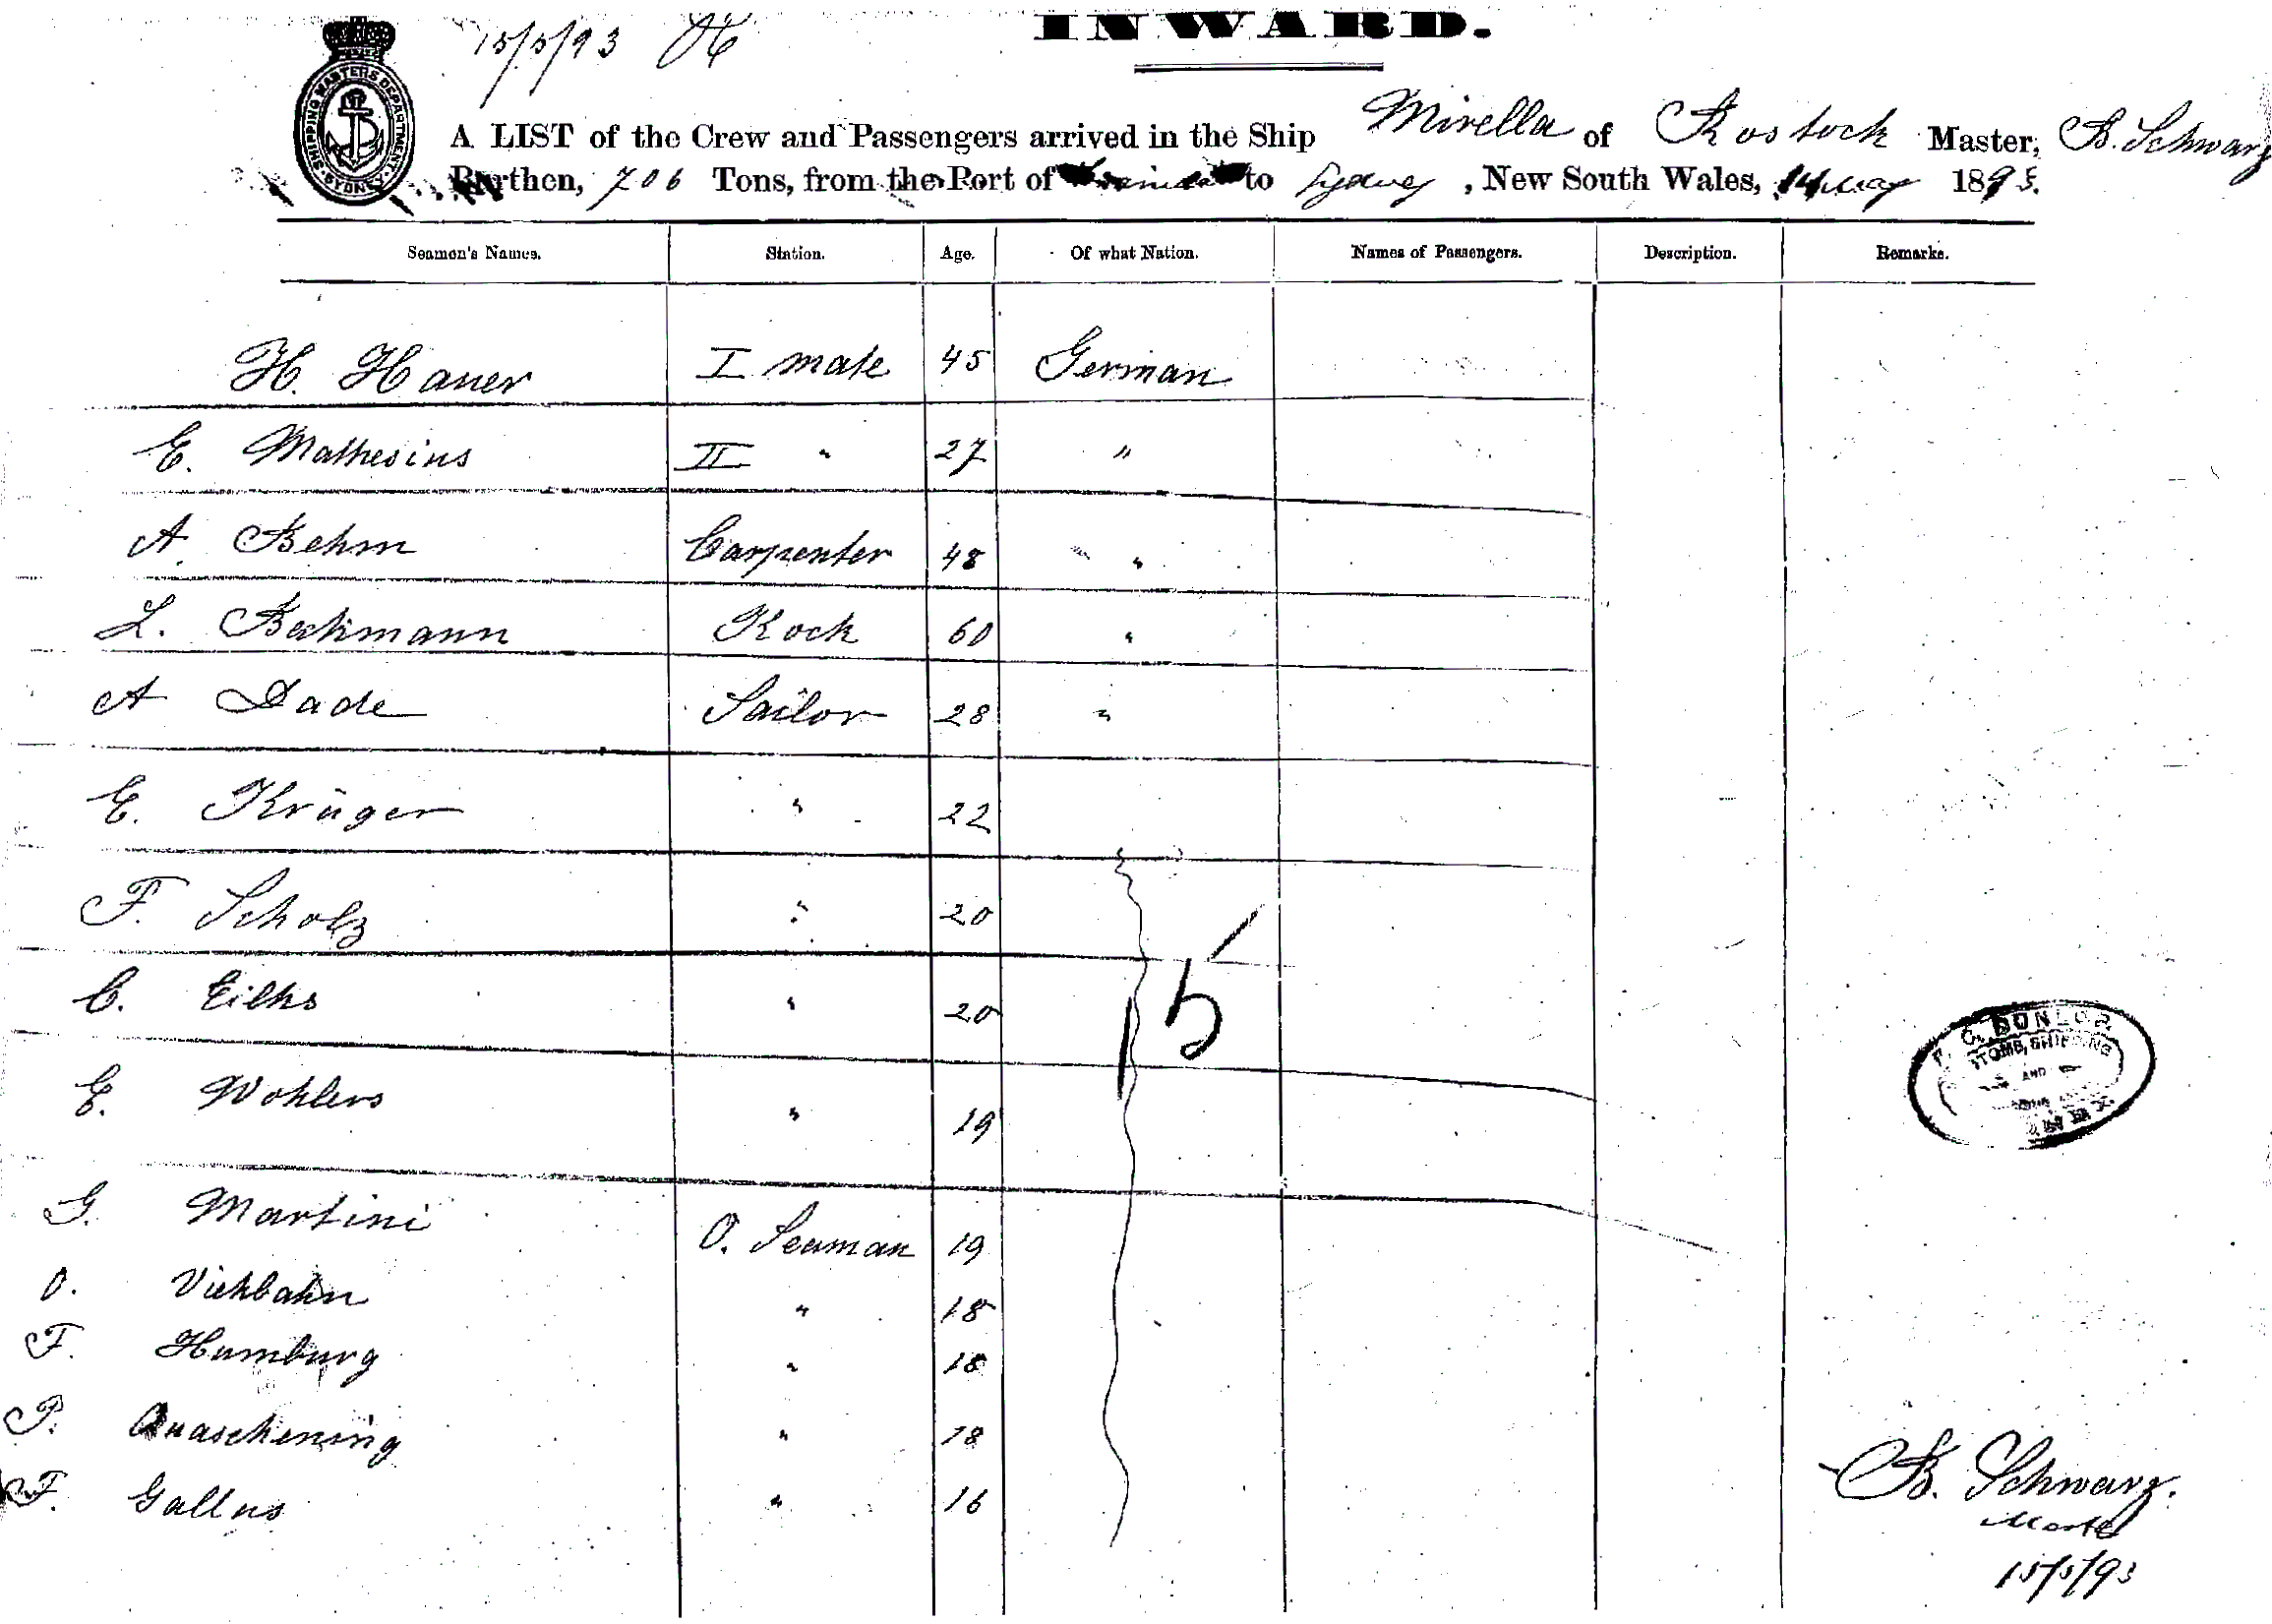 15/5/93
INWARD.
SHIPPING MASTERS DEPARTMENT SYDNEY
A LIST of the Crew and Passengers arrived in the Ship Mirella of Rostock Master, B. Schwarz
Burthen, 706 Tons, from the Port of to Sydney, New South Wales, 14 May 1893.
Seamen's Names. Station. Age. Of what Nation. Names of Passengers. Description. Remarks.
H. Hauer I mate 45 German
E. Mathesius II " 27 "
A. Behm Carpenter 48 "
L. Beckmann Kock 60 "
A Dade Sailor 28 "
E. Krüger " 22
F. Scholz " 20
C. Eilks " 20
15
E. Wohlers " 19
G. Martini O. Seaman 19
O. Viehbahn " 18
F. Humburg " 18
P. Quaschening " 18
F. Gallus " 16
C. DUNLOP
SHIPPING
AND
B. Schwarz.
Master
15/5/93